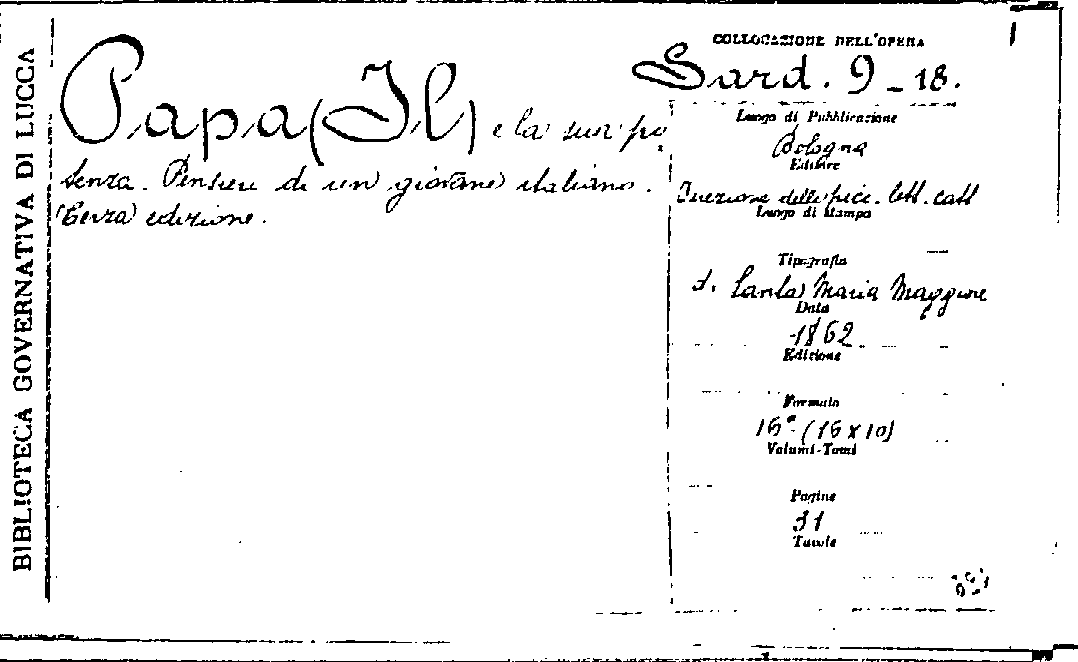 BIBLIOTECA GOVERNATIVA DI LUCCA
Papa (Il) e la sua po
senza. Pensieri di un giovane italiano.
Terza edizione.
1
COLLOCAZIONE DELL'OPERA
Sard. 9-18.
Luogo di Pubblicazione
Bologna
Editore
Direzione delle picc. lett. catt
Luogo di stampa
Tipografia
d. Santa Maria Maggiore
Data
1862
Edizione
Formato
16° (16 x 10)
Volumi-Tomi
Pagine
31
Tavole